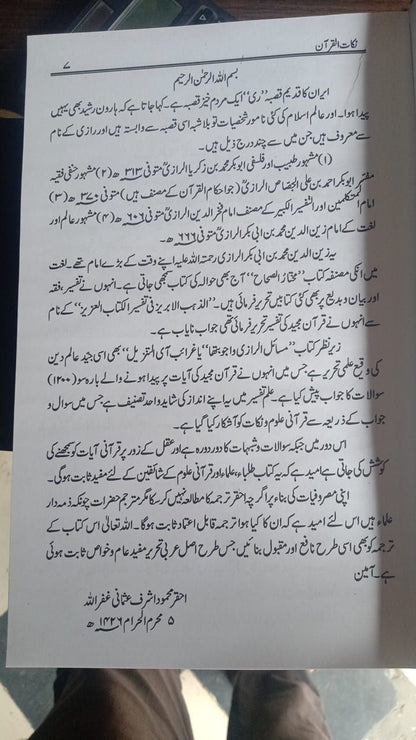 نکات القرآن
۷
بسم اللہ الرحمٰن الرحیم
ایران کا قدیم قصبہ ”ری“ ایک مردم خیز قصبہ ہے۔ کہا جاتا ہے کہ ہارون رشید بھی یہیں
پیدا ہوا۔ اور عالم اسلام کی کئی نامور شخصیات تو بلاشبہ اسی قصبہ سے وابستہ ہیں اور رازی کے نام
سے معروف ہیں جن میں سے چند درج ذیل ہیں۔
(۱) مشہور طبیب اور فلسفی ابوبکر محمد بن زکریا الرازیؒ متوفی ۳۱۳ھ (۲) مشہور حنفی فقیہ
مفتی ابوبکر احمد بن علی الجصاص الرازیؒ (جو احکام القرآن کے مصنف ہیں) متوفی ۳۷۰ھ (۳)
المتکلمین اور التفسیر الکبیر کے مصنف امام فخر الدین الرازیؒ متوفی ۶۰۶ھ (۴) مشہور عالم اور
لغت کے امام زین الدین محمد بن ابی بکر الرازیؒ متوفی ۶۶۶ھ۔
یہ زین الدین محمد بن ابی بکر الرازی رحمۃ اللہ علیہ اپنے وقت کے بڑے امام تھے۔ لغت
میں انکی مصنفہ کتاب ”مختار الصحاح“ آج بھی حوالہ کی کتاب سمجھی جاتی ہے۔ انہوں نے تفسیر، فقہ
اور بیان و بدیع پر بھی کئی کتابیں تحریر فرمائی ہیں۔ ”الذہب الابریز فی تفسیر الکتاب العزیز“ کے نام
سے انہوں نے قرآن مجید کی تفسیر تحریر فرمائی تھی جو اب نایاب ہے۔
زیر نظر کتاب ”مسائل الرازی واجوبتھا“ یا ”غرائب آی التنزیل“ بھی اسی جید عالم دین
کی وقیع علمی تحریر ہے جس میں انہوں نے قرآن مجید کی آیات پر پیدا ہونے والے بارہ سو (۱۲۰۰)
سوالات کا جواب پیش کیا ہے۔ علم تفسیر میں یہ اپنے انداز کی شاید واحد تصنیف ہے جس میں سوال و
جواب کے ذریعہ سے قرآنی علوم و نکات کو آشکار کیا گیا ہے۔
اس دور میں جبکہ سوالات و شبہات کا دور دورہ ہے اور عقل کے زور پر قرآنی آیات کو سمجھنے کی
کوشش کی جاتی ہے امید ہے کہ یہ کتاب طلباء، علماء اور قرآنی علوم کے شائقین کے لئے مفید ثابت ہوگی۔
اپنی مصروفیات کی بناء پر اگرچہ احقر ترجمہ کا مطالعہ نہیں کر سکا مگر مترجم حضرات چونکہ ذمہ دار
علماء ہیں اس لئے امید ہے کہ ان کا کیا ہوا ترجمہ قابل اعتماد ثابت ہوگا۔ اللہ تعالیٰ اس کتاب کے
ترجمہ کو بھی اسی طرح نافع اور مقبول بنائیں جس طرح اصل عربی تحریر مفید عام و خواص ثابت ہوئی
ہے۔ آمین
احقر محمود اشرف عثمانی غفر اللہ
۵ محرم الحرام ۱۴۲۶ھ